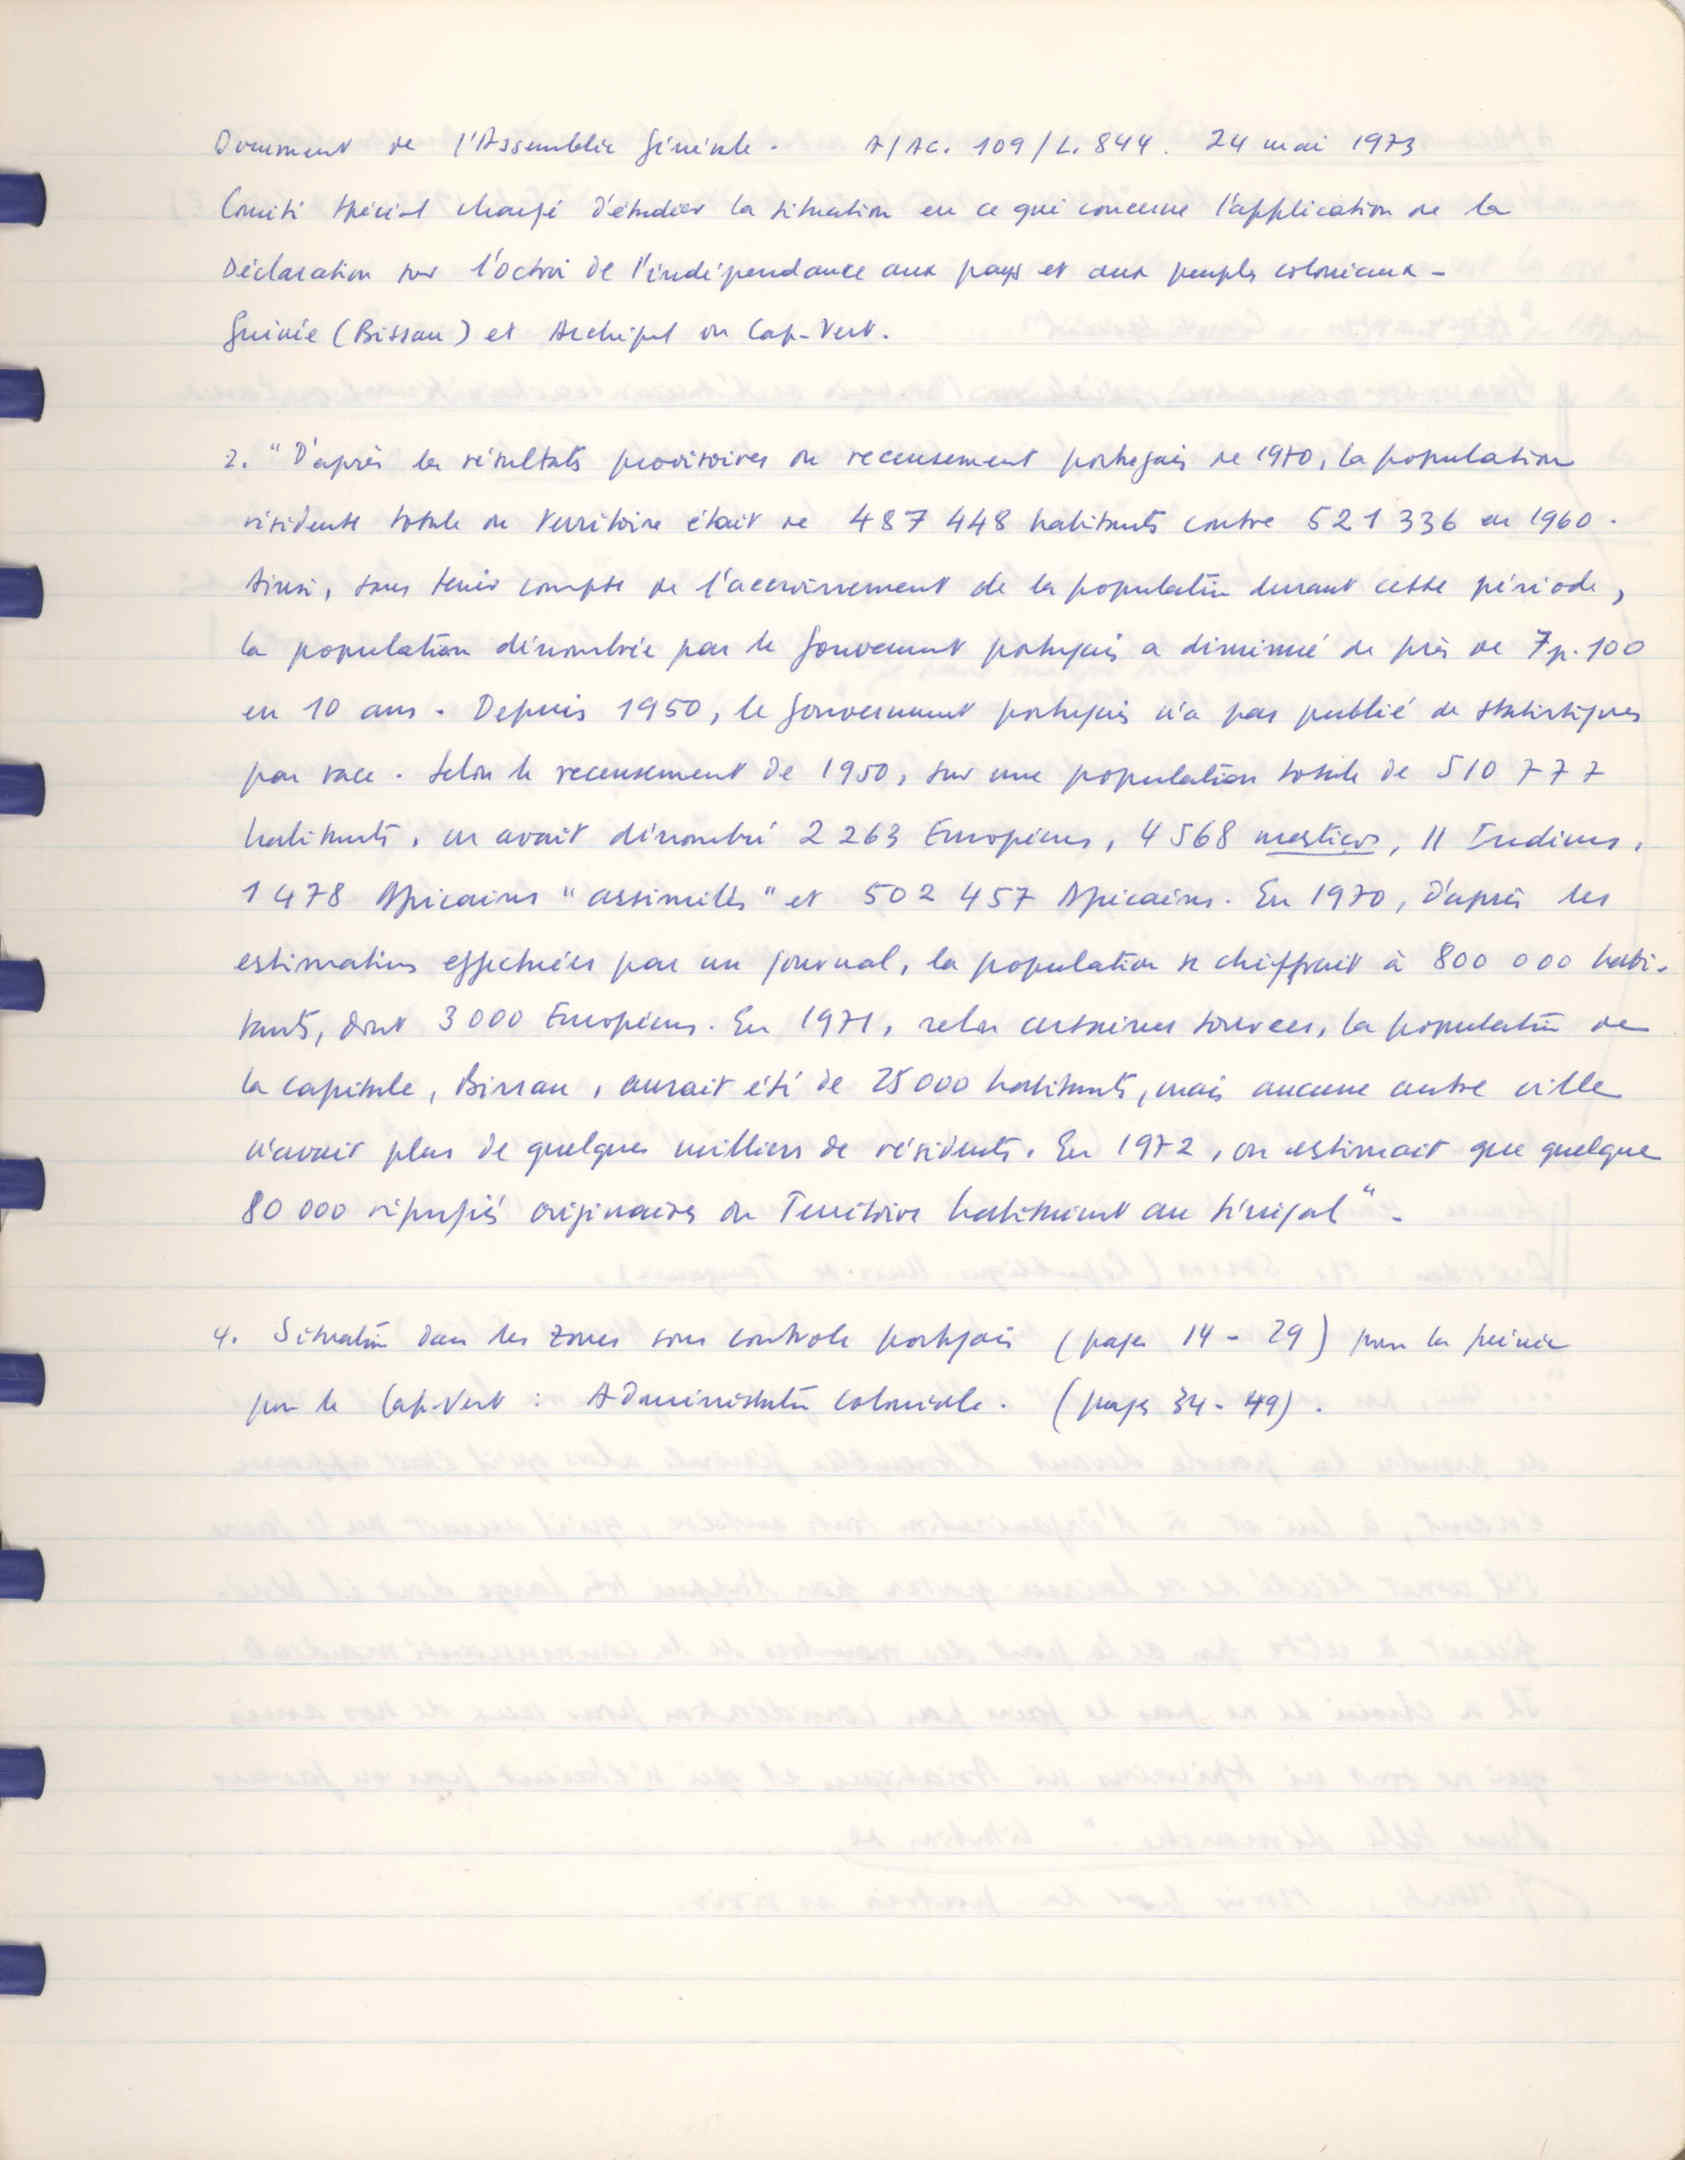 Document de l'Assemblée Générale. A/AC. 109/L. 844. 24 mai 1973
Comité spécial chargé d'étudier la situation en ce qui concerne l'application de la
Déclaration sur l'octroi de l'indépendance aux pays et aux peuples coloniaux -
Guinée (Bissau) et Archipel du Cap-Vert.
2. "D'après les résultats provisoires du recensement portugais de 1970, la population
résidente totale du territoire était de 487 448 habitants contre 521 336 en 1960.
Ainsi, sans tenir compte de l'accroissement de la population durant cette période,
la population dénombrée par le Gouvernement portugais a diminué de près de 7 p. 100
en 10 ans. Depuis 1950, le Gouvernement portugais n'a pas publié de statistiques
par race. Selon le recensement de 1950, sur une population totale de 510 777
habitants, on avait dénombré 2 263 Européens, 4 568 mestiços, 11 Indiens,
1 478 Africains "assimilés" et 502 457 Africains. En 1970, d'après les
estimations effectuées par un journal, la population se chiffrait à 800 000 habi-
tants, dont 3 000 Européens. En 1971, selon certaines sources, la population de
la capitale, Bissau, aurait été de 25 000 habitants, mais aucune autre ville
n'avait plus de quelques milliers de résidents. En 1972, on estimait que quelque
80 000 réfugiés originaires du Territoire habitaient au Sénégal".
4. Situation dans les zones sous contrôle portugais (pages 14 - 29) pour la Guinée
pour le Cap-Vert : Administration coloniale. (pages 34 - 49).